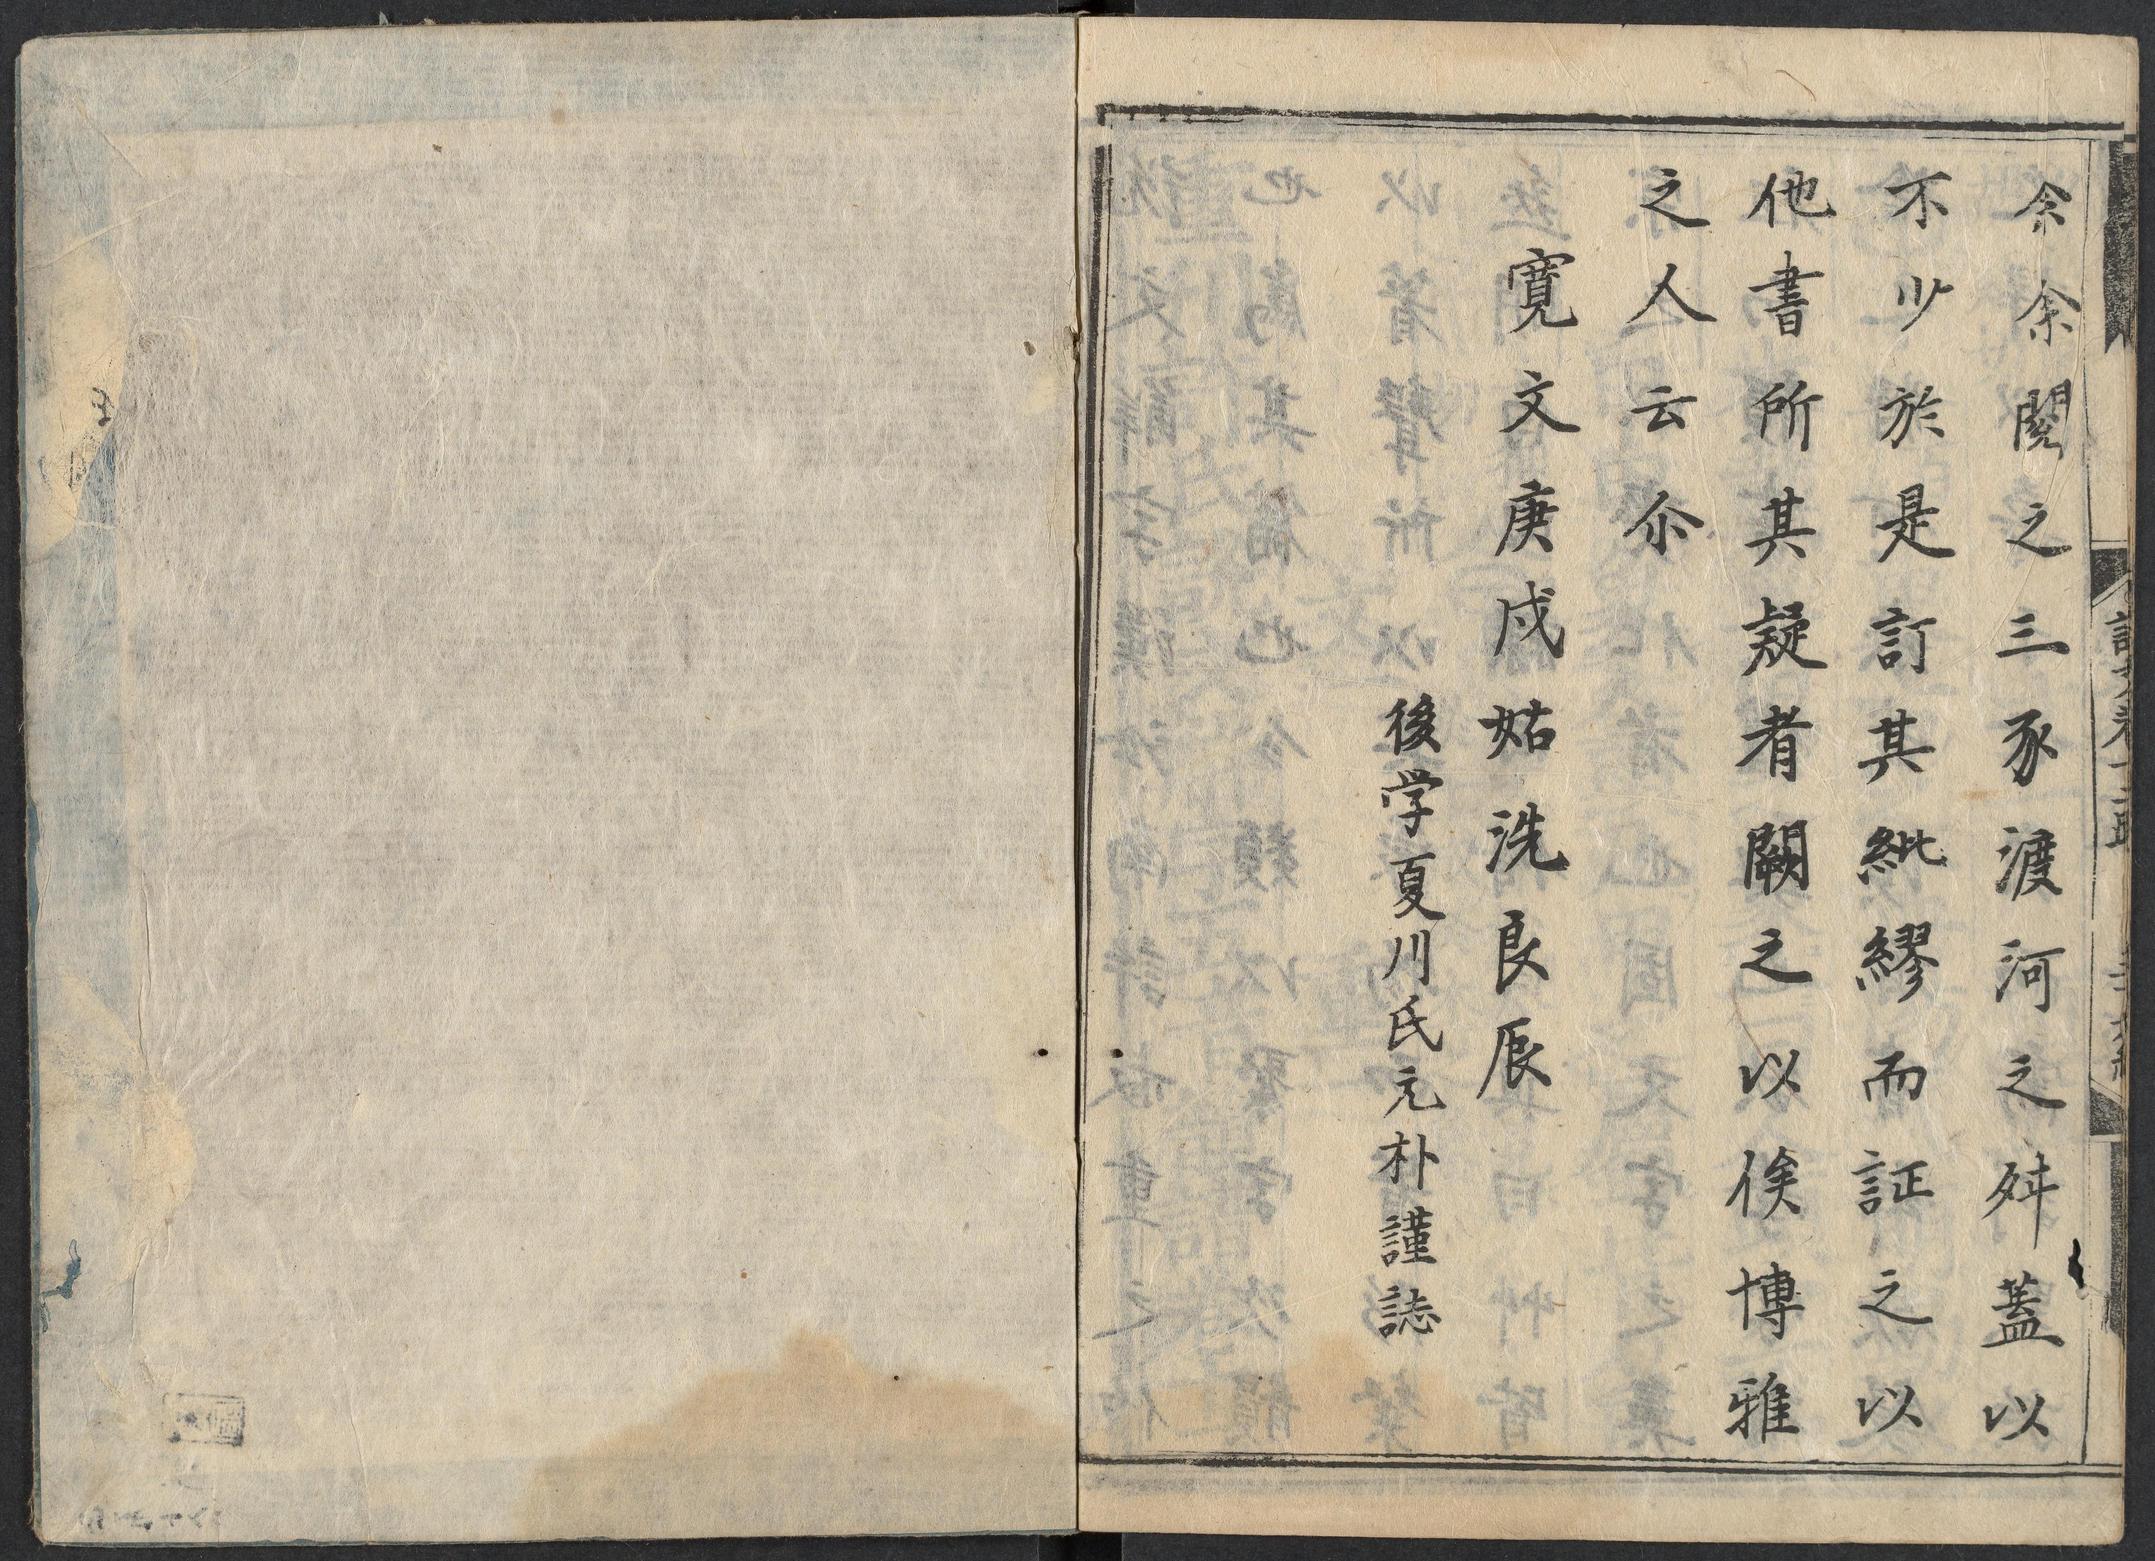 余余閱之三豕渡河之舛蓋以
不少於是訂其紕繆而証之以
他書所其疑者闕之以俟博雅
之人云尒
寛文庚戌姑洗良辰
後学夏川氏元朴謹誌